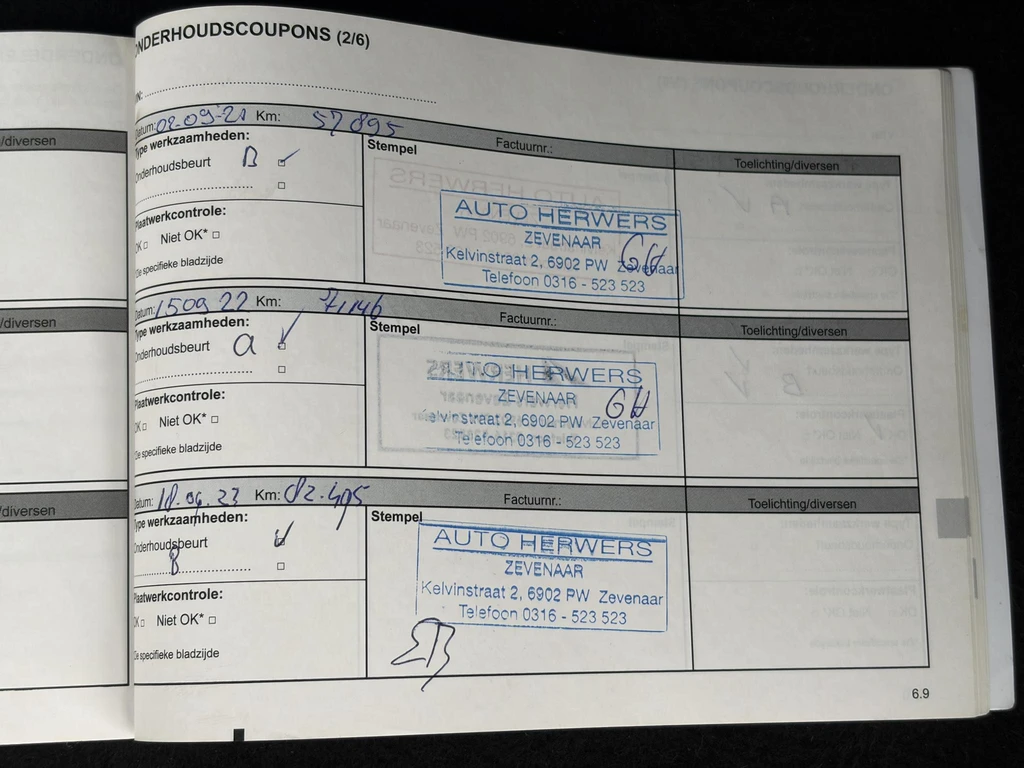 ONDERHOUDSCOUPONS (2/6)
Datum: 02-09-21 Km: 57895
Factuurnr.:
Type werkzaamheden:
Stempel
Toelichting/diversen
Onderhoudsbeurt B
AUTO HERWERS
ZEVENAAR
Kelvinstraat 2, 6902 PW Zevenaar
Telefoon 0316 - 523 523
GH
Plaatwerkcontrole:
OK □ Niet OK* □
Zie specifieke bladzijde
Datum: 15 09 22 Km: 71,146
Factuurnr.:
Type werkzaamheden:
Stempel
Toelichting/diversen
Onderhoudsbeurt a
AUTO HERWERS
ZEVENAAR
Kelvinstraat 2, 6902 PW Zevenaar
Telefoon 0316 - 523 523
GH
Plaatwerkcontrole:
OK □ Niet OK* □
Zie specifieke bladzijde
Datum: Km: 82.495
Factuurnr.:
Type werkzaamheden:
Stempel
Toelichting/diversen
Onderhoudsbeurt
B
AUTO HERWERS
ZEVENAAR
Kelvinstraat 2, 6902 PW Zevenaar
Telefoon 0316 - 523 523
Plaatwerkcontrole:
OK □ Niet OK* □
Zie specifieke bladzijde
6.9
/diversen
/diversen
/diversen